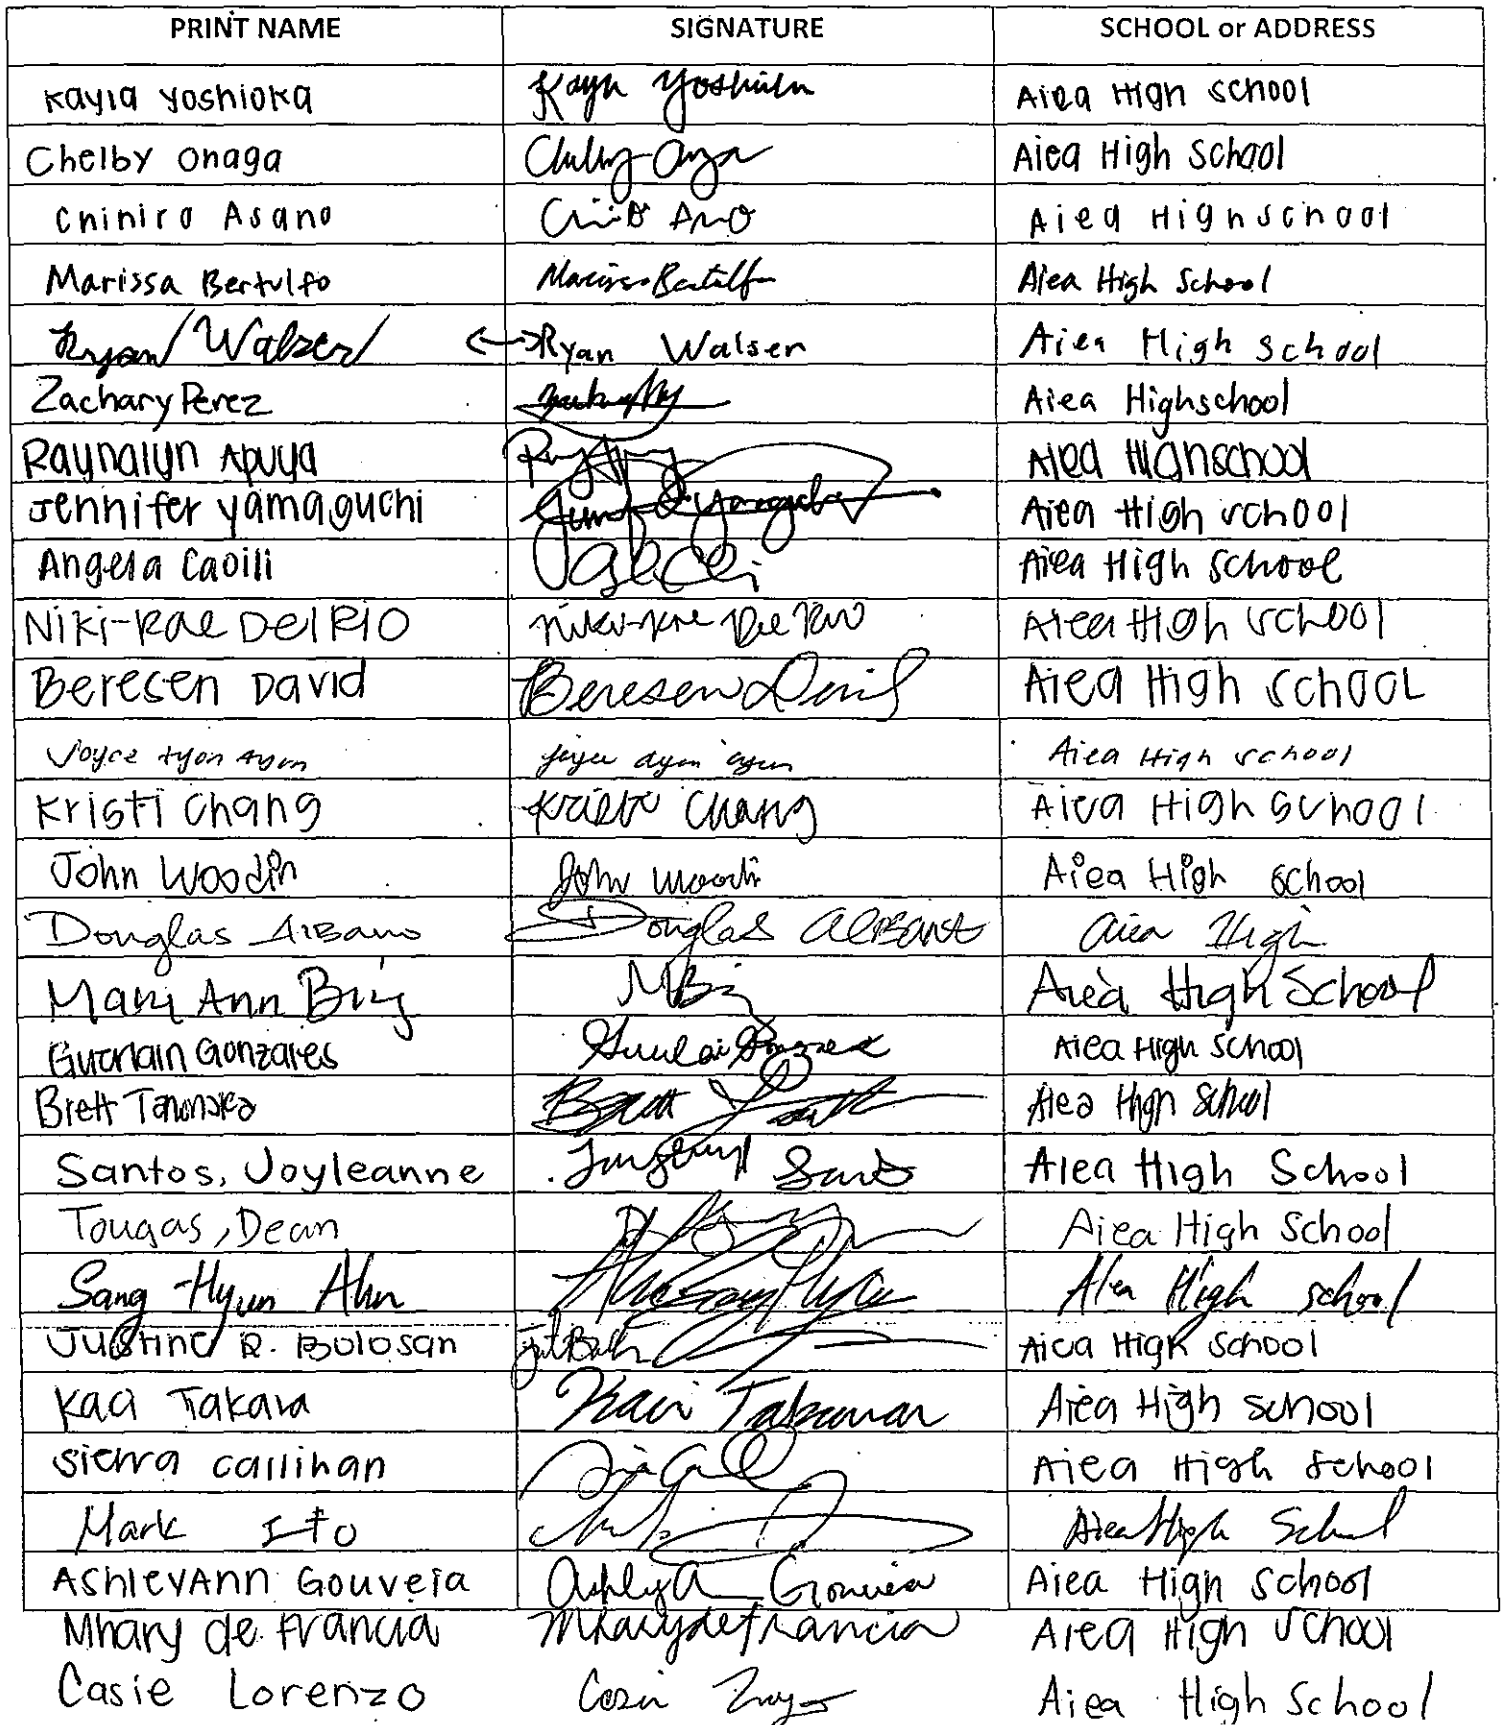 PRINT NAME SIGNATURE SCHOOL or ADDRESS
Kayla Yoshioka Kayla Yoshioka Aiea High School
Chelby Onaga Aiea High School
Chihiro Asano Aiea Highschool
Marissa Bertulfo Marissa Bertulfo Aiea High School
Ryan Walser <-> Ryan Walser Aiea High School
Zachary Perez Aiea Highschool
Raynalyn Apuya Aiea Highschool
Jennifer Yamaguchi Aiea High School
Angela Caoili Aiea High School
Niki-Rae Del Rio Niki-Rae Del Rio Aiea High School
Beresen David Beresen David Aiea High School
Joyce Ayon Ayon Joyce Ayon Ayon Aiea High School
Kristi Chang Kristi Chang Aiea High School
John Woodin John Woodin Aiea High School
Douglas Albano Douglas Albano Aiea High
Mary Ann Aiea High School
Gonzales Aiea High School
Brett Brett Aiea High School
Santos, Joyleanne Santos Aiea High School
Tougas, Dean Aiea High School
Sang-Hyun Ahn Ahn Sang Hyun Aiea High School
Justine R. Bolosan Aiea High School
Kaci Takara Kaci Takara Aiea High School
Sierra Callihan Aiea High School
Mark Ito Aiea High School
AshleyAnn Gouveia Gouveia Aiea High School
Mhary de Francia Mhary de Francia Aiea High School
Casie Lorenzo Casie Aiea High School